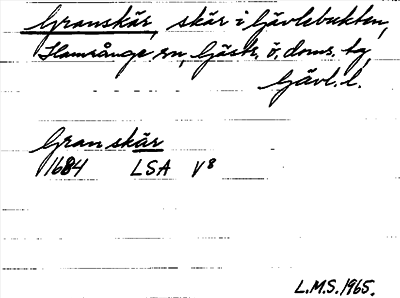 Granskär, skär i Gävlebukten,
Hamrånge sn, Gästr. ö. doms. hg
Gävl. l.
Granskär
1684 LSA V8
L.M.S. 1965.